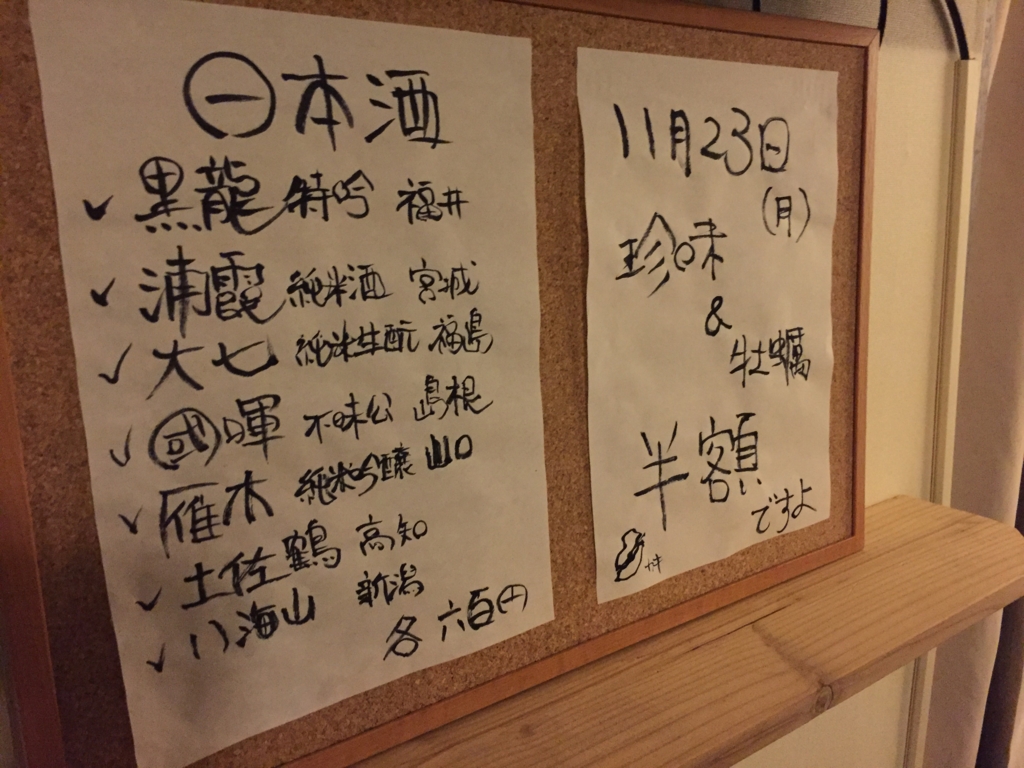 日本酒
黒龍 特吟 福井
浦霞 純米酒 宮城
大七 純米生酛 福島
國暉 不昧公 島根
雁木 純米吟醸 山口
土佐鶴 高知
八海山 新潟
各 六百円
11月23日
(月)
珍味
&
牡蠣
半額
ですよ